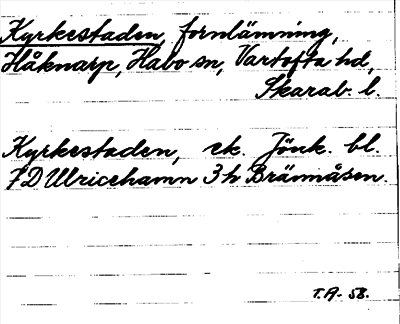 Kyrkestaden, fornlämning,
Håknarp, Habo sn, Vartofta hd,
Skarab. l.
Kyrkestaden, ek. Jönk. bl.
7D Ulricehamn 3h Brännåsen.
T.A. 58.